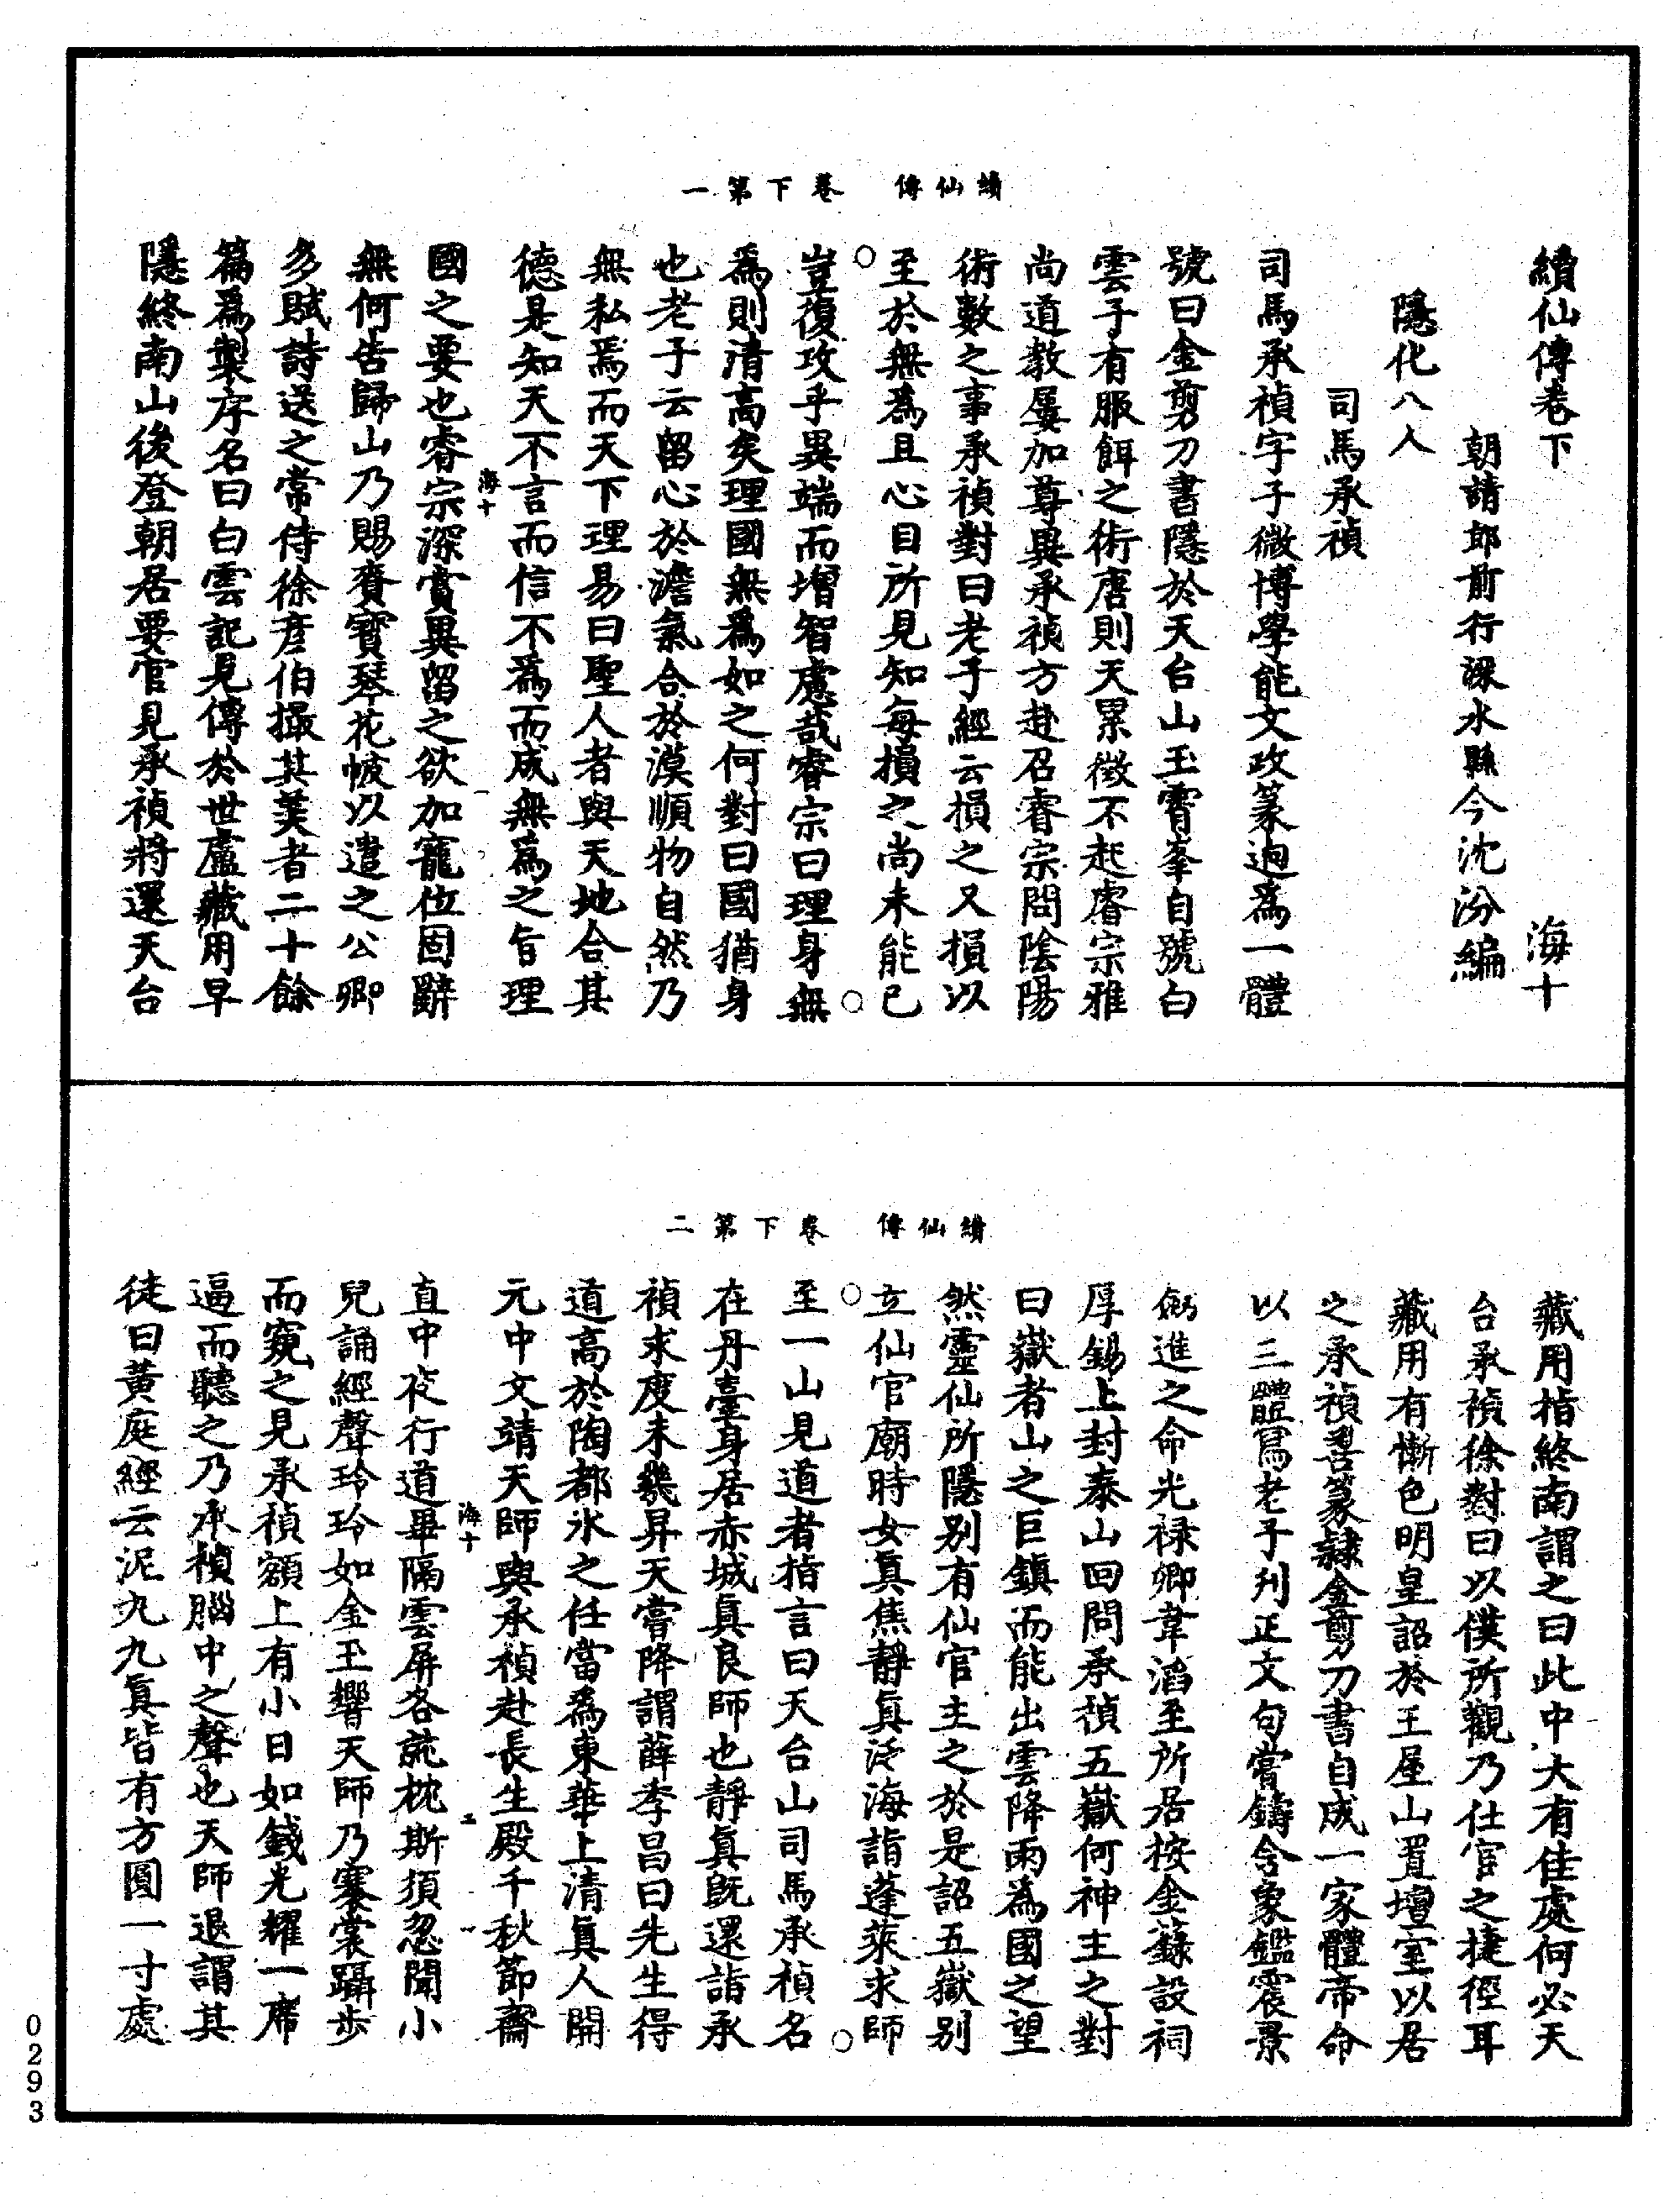 續仙傳　卷下第一
續仙傳卷下　海十
朝請郎前行溧水縣令沈汾編
隱化八人
司馬承禎
司馬承禎字子微博學能文攻篆迥爲一體
號曰金剪刀書隱於天台山玉霄峯自號白
雲子有服餌之術唐則天累徵不起睿宗雅
尚道教屢加尊異承禎方赴召睿宗問陰陽
術數之事承禎對曰老子經云損之又損以
至於無爲且心目所見知每損之尚未能已
豈復攻乎異端而增智慮哉睿宗曰理身無
爲則清高矣理國無爲如之何對曰國猶身
也老子云留心於澹氣合於漠順物自然乃
無私焉而天下理易曰聖人者與天地合其
德是知天不言而信不爲而成無爲之旨理
海十
國之要也睿宗深賞異留之欲加寵位固辭
無何告歸山乃賜賚寶琴花帔以遣之公卿
多賦詩送之常侍徐彥伯撮其美者二十餘
篇爲製序名曰白雲記見傳於世盧藏用早
隱終南山後登朝居要官見承禎將還天台
續仙傳　卷下第二
藏用指終南謂之曰此中大有佳處何必天
台承禎徐對曰以僕所觀乃仕官之捷徑耳
藏用有慚色明皇詔於王屋山置壇室以居
之承禎善篆隸金剪刀書自成一家體帝命
以三體寫老子刋正文句嘗鑄含象鑑震景
劒進之命光禄卿韋滔至所居按金籙設祠
厚錫上封泰山回問承禎五嶽何神主之對
曰嶽者山之巨鎮而能出雲降雨爲國之望
然靈仙所隱别有仙官主之於是詔五嶽别
立仙官廟時女真焦靜真泛海詣蓬萊求師
至一山見道者指言曰天台山司馬承禎名
在丹臺身居赤城真良師也靜真既還詣承
禎求度未幾昇天嘗降謂薛季昌曰先生得
道高於陶都水之任當爲東華上清真人開
元中文靖天師與承禎赴長生殿千秋節齋
海十
直中夜行道畢隔雲屏各就枕斯須忽聞小
兒誦經聲玲玲如金玉響天師乃褰裳躡步
而窺之見承禎額上有小日如錢光耀一席
逼而聽之乃承禎腦中之聲也天師退謂其
徒曰黃庭經云泥丸九真皆有方圓一寸處
0293